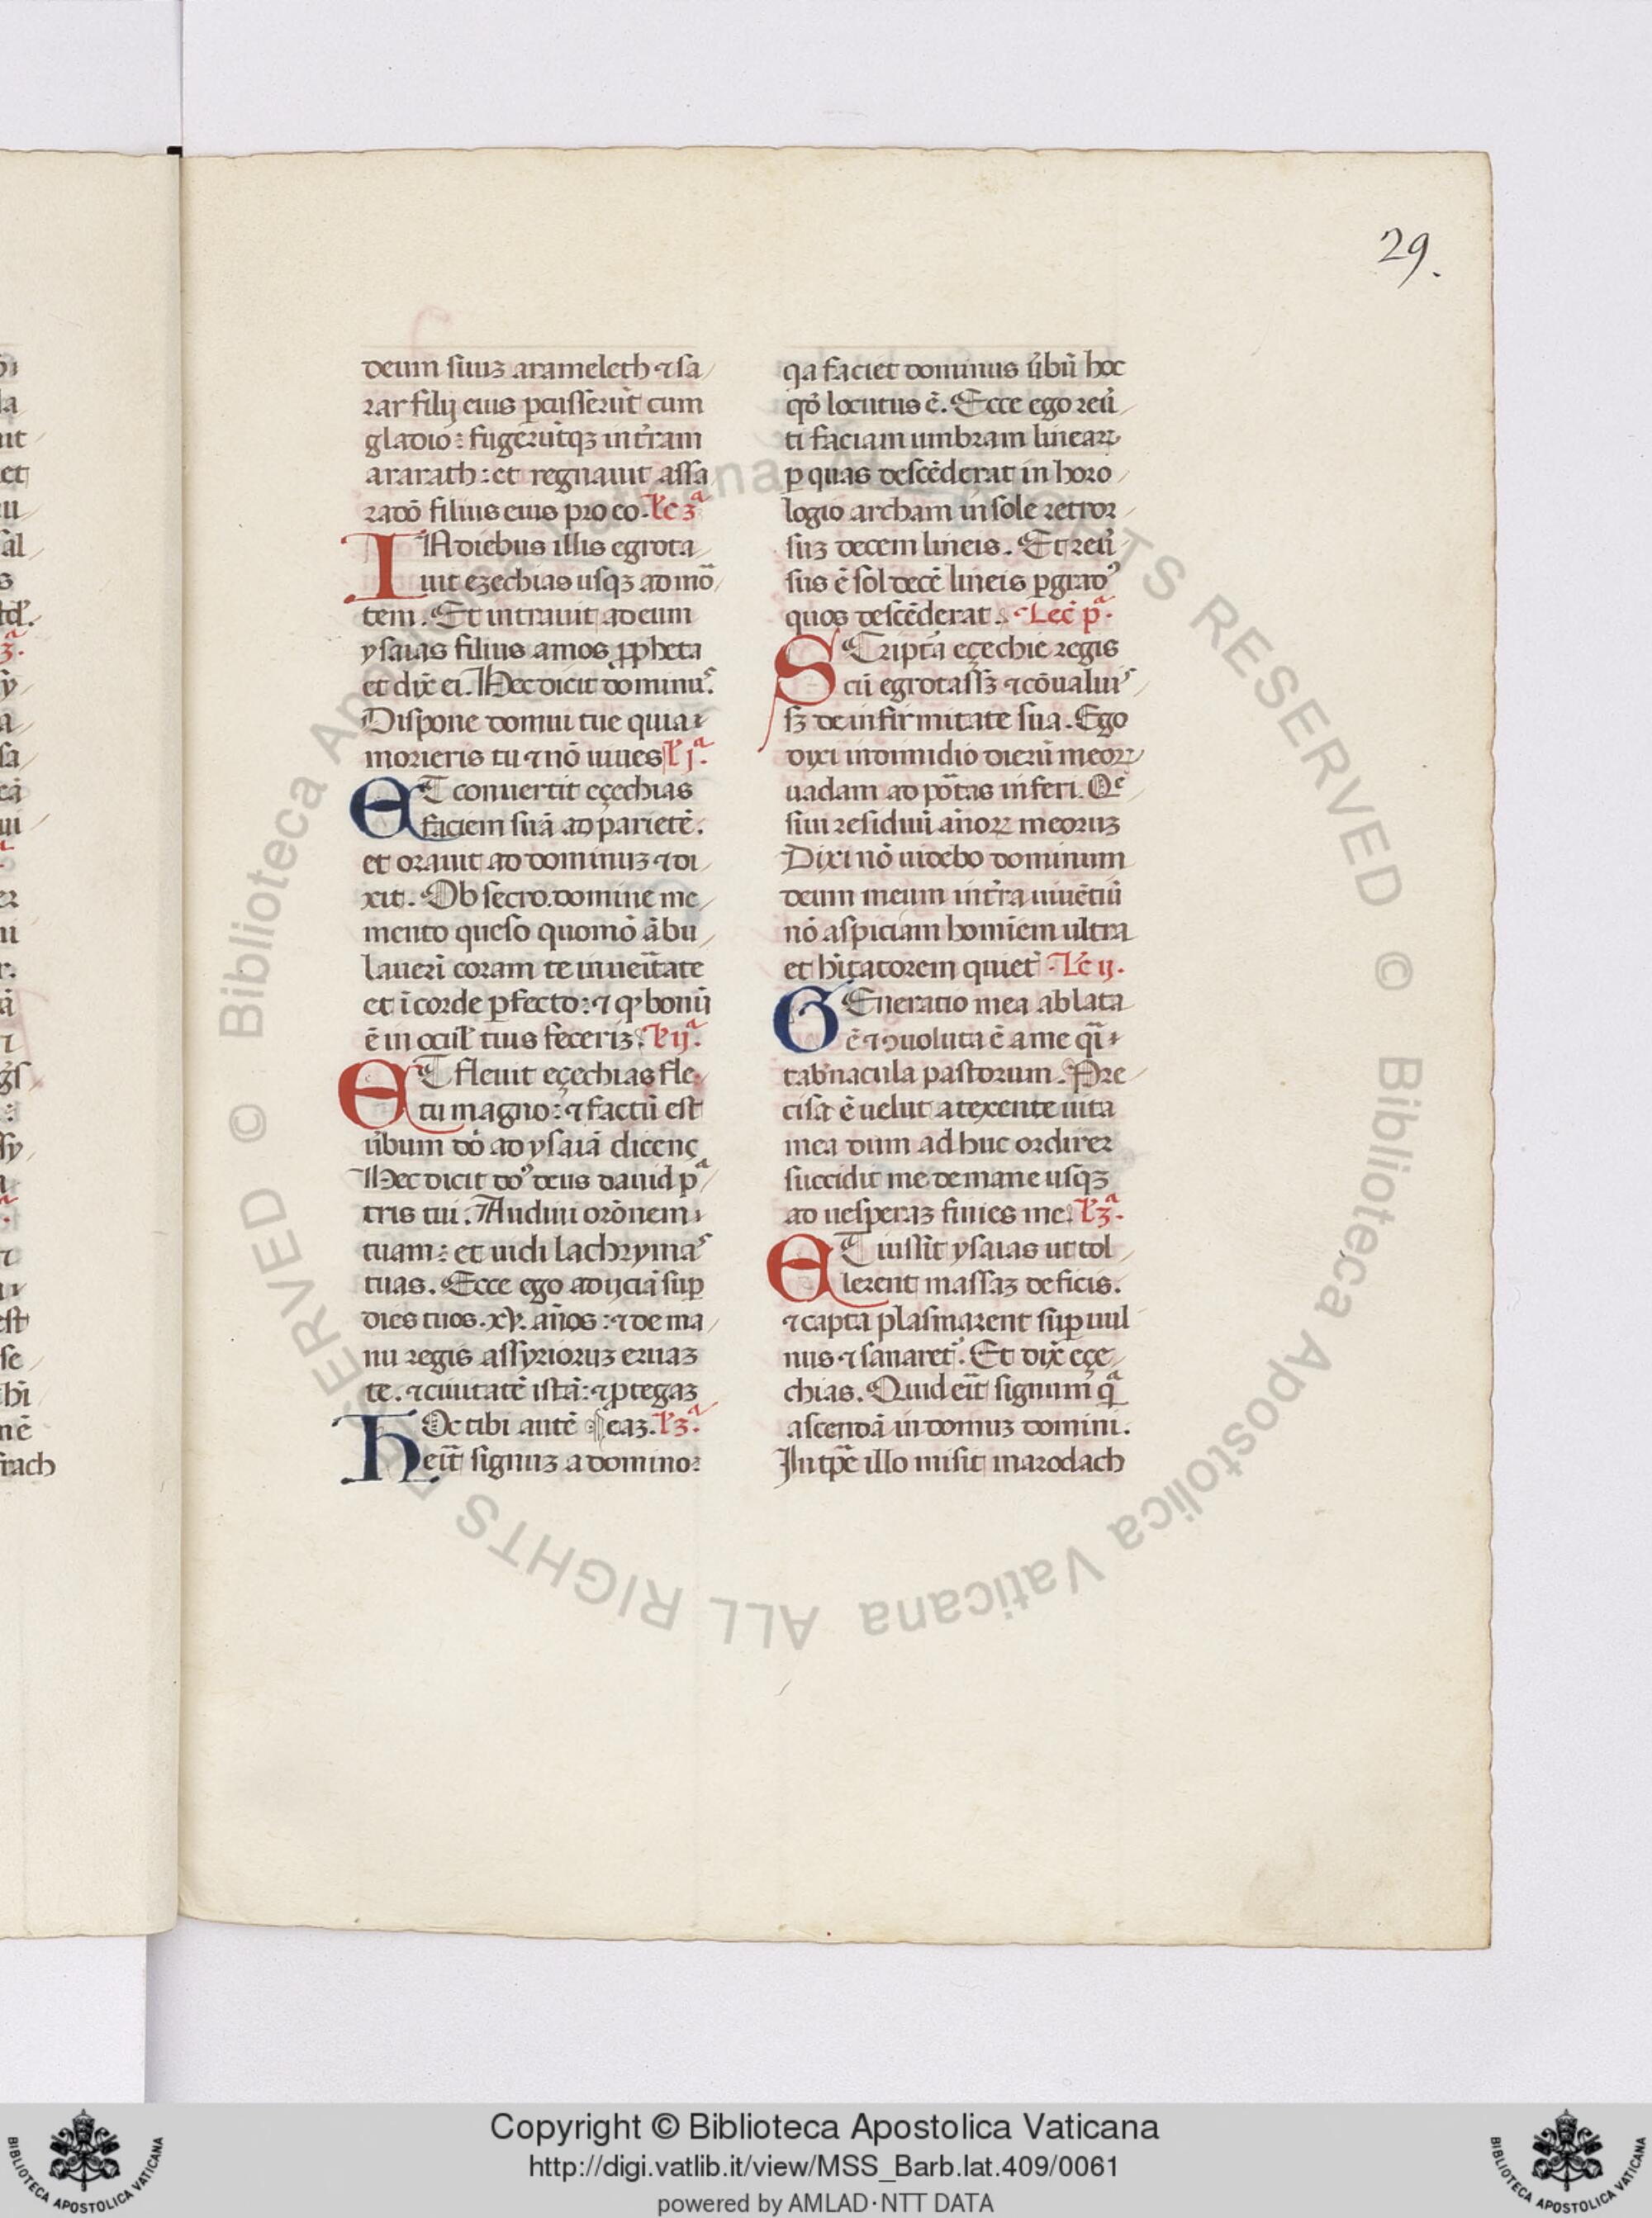 29.
deum suuʒ arameleth ⁊ sa
rar filij eius ꝑcussẽrũt cum
gladio: fugerũtqʒ in t̃ram
ararath: et regnauit assa
radõ filius eius pro eo. Łc 3ª
IN diebus illis egrota
uit ezechias usqʒ ad mõ
tem. Et intrauit ad eum
ysaias filius amos ꝓpheta
et dix̃ ei. Hec dicit dominuˢ.
Dispone domui tue quia
morieris tu ⁊ nõ uiues ł jª.
ET conuertit eçechias
faciem suã ad parietẽ.
et orauit ad dominuʒ ⁊ di
xit. Obsecro domine me
mento queso quomõ ãbu
lauerĩ coram te in ueĩtate
et ĩ corde ꝑfecto: ⁊ qꝫ bonũ
ẽ in ocuł tuis feceriʒ. ł ijª.
ET fleuit eçechias fle
tu magno: ⁊ factũ est
ũbum dõ ad ysaiã dicenç
Hec dicit do᾽ deus dauid pª
tris tui. Audiui orõnem
tuam: et uidi lachrymaˢ
tuas. Ecce ego adijciã suꝑ
dies tuos .xv. años: ⁊ de ma
nu regis assyrioruʒ eruaʒ
te. ⁊ ciuitatẽ istã: ⁊ ꝓtegaʒ
HOc tibi autẽ eaʒ. ł 3ª.
eĩt signuʒ a domino:
qa faciet dominus ũbũ hoc
qđ locutus ẽ. Ecce ego reũ
ti faciam umbram lineaꝝ
ꝑ quas descẽderat in horo
logio archam in sole retror
suʒ decem lineis. Et reũ
sus ẽ sol decẽ lineis ꝑ grad᾽
quos descẽderat. Lec̃ pª.
SCripta eçechie regis
cũ egrotassʒ ⁊ cõualuiˢ
sʒ de infirmitate sua. Ego
dixi in dimidio dierũ meoꝝ
uadam ad põtas inferi. Qᵉ
siui residuũ añoꝝ meoruʒ
Dixi nõ uidebo dominum
deum meum in t̃ra uiuẽtiũ
nõ aspiciam homĩem ultra
et hĩtatorem quiet᾽. Łc ij.
GEneratio mea ablata
ẽ ⁊ ↄuoluta ẽ a me qĩ
tab̾nacula pastorum. Pre
cisa ẽ uelut a texente uita
mea dum ad huc ordirer
succidit me de mane usqʒ
ad uesperaʒ finies me. ł 3ª.
ET iussit ysaias ut tol
lerent massaʒ de ficis.
⁊ capta plasmarent suꝑ uul
nus ⁊ sanaret᾽. Et dix̃ eçe
chias. Quid eĩt signum qª
ascendã in domuʒ domini.
In tꝑe illo misit marodach
Copyright © Biblioteca Apostolica Vaticana
http://digi.vatlib.it/view/MSS_Barb.lat.409/0061
powered by AMLAD·NTT DATA